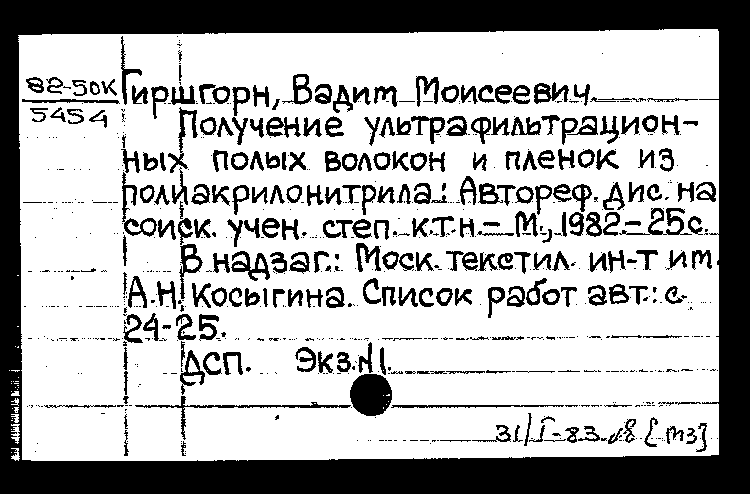 82-50К
5454
Гиршгорн, Вадим Моисеевич
Получение ультрафильтрацион-
ных полых волокон и пленок из
полиакрилонитрила: Автореф. дис. на
соиск. учен. степ. к.т.н. - М., 1982. - 25с.
В надзаг.: Моск. текстил. ин-т им.
А.Н. Косыгина. Список работ авт.: с.
24-25.
ДСП. Экз. N1.
31/I-83 [МЗ]